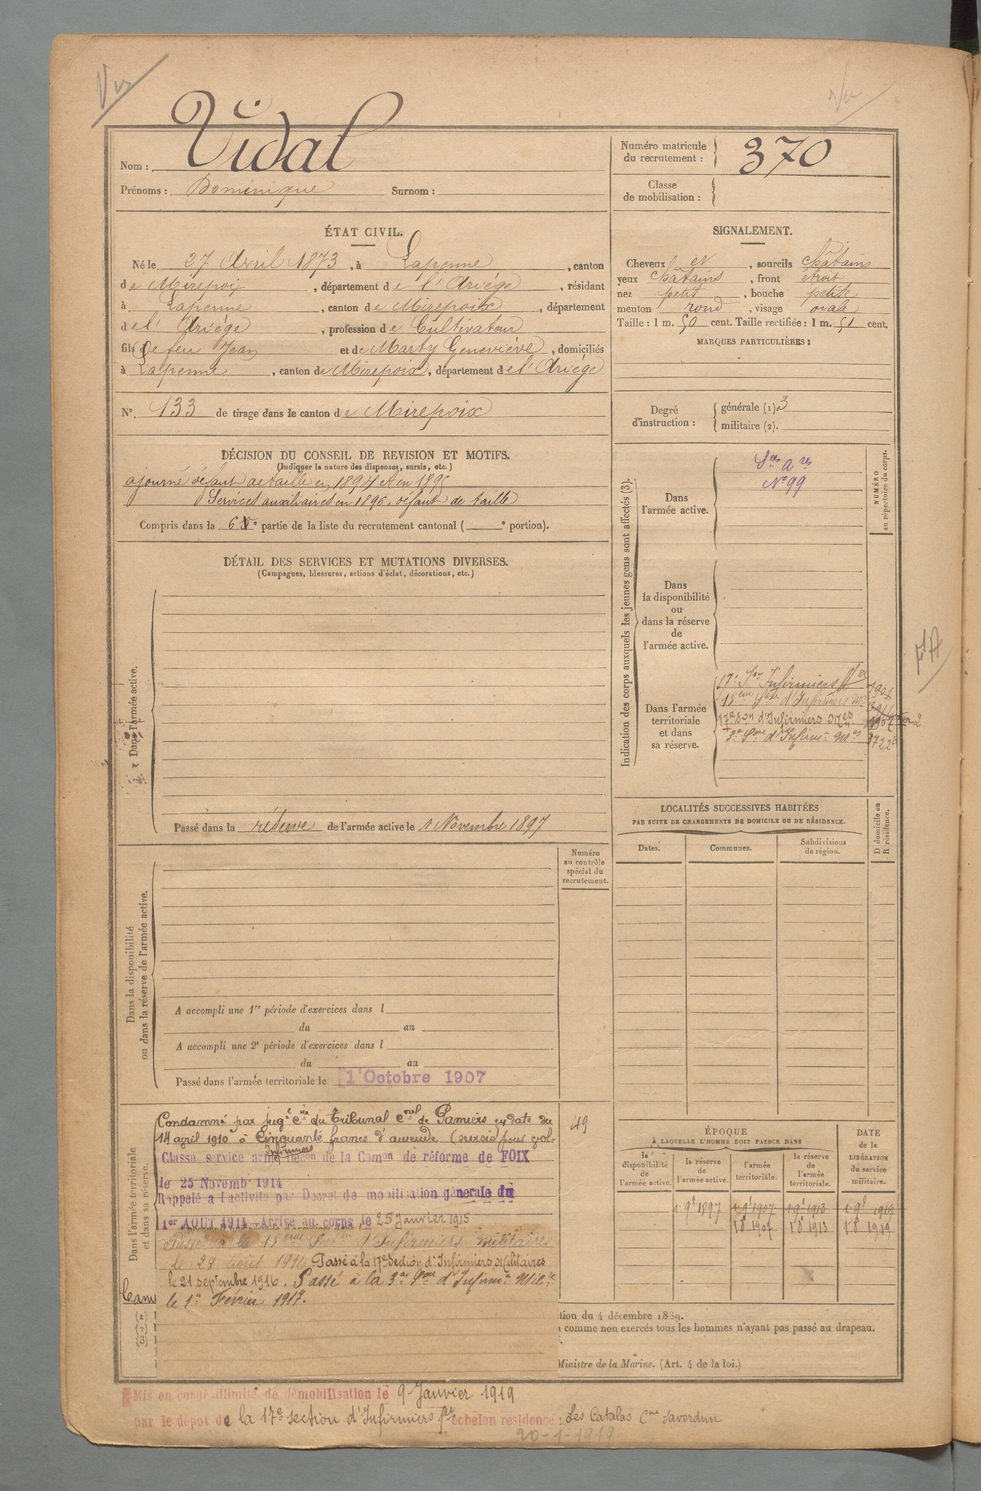 Vu
Vu
Nom : Vidal
Prénoms : Dominique Surnom :
Numéro matricule
du recrutement : 370
Classe
de mobilisation :
ÉTAT CIVIL.
Né le 27 Avril 1873, à Lapenne, canton
de Mirepoix, département de l'Ariége, résidant
à Lapenne, canton de Mirepoix, département
de l'Ariége, profession de Cultivateur
fils de feu Jean et de Marty Geneviève, domiciliés
à Lapenne, canton de Mirepoix, département de l'Ariége
N° 133 de tirage dans le canton de Mirepoix
SIGNALEMENT.
Cheveux et, sourcils chatains
yeux chatains, front étroit
nez petit, bouche petite
menton rond, visage ovale
Taille : 1 m. 50 cent. Taille rectifiée : 1 m. 51 cent.
MARQUES PARTICULIÈRES :
Degré
d'instruction :
générale (1) 3
militaire (2).
DÉCISION DU CONSEIL DE REVISION ET MOTIFS.
(Indiquer la nature des dispenses, sursis, etc.)
ajourné défaut de taille en 1894 et en 1895
Services auxiliaires en 1896, défaut de taille
Compris dans la 6e partie de la liste du recrutement cantonal ( e portion).
DÉTAIL DES SERVICES ET MUTATIONS DIVERSES.
(Campagnes, blessures, actions d'éclat, décorations, etc.)
Dans l'armée active.
Passé dans la réserve de l'armée active le 1 Novembre 1897
Indication des corps auxquels les jeunes gens sont affectés (3).
NUMÉRO
au répertoire du corps.
Dans
l'armée active.
Sces Ares
N° 99
Dans
la disponibilité
ou
dans la réserve
de
l'armée active.
Dans l'armée
territoriale
et dans
sa réserve.
17e Son Infirmiers
15ème Son d'Infirmiers
17e Son d'Infirmiers
3e d'Infirm
LOCALITÉS SUCCESSIVES HABITÉES
PAR SUITE DE CHANGEMENTS DE DOMICILE OU DE RÉSIDENCE.
Dates.
Communes.
Subdivisions
de région.
D domicile ou
R résidence.
Numéro
au contrôle
spécial du
recrutement.
Dans la disponibilité
ou dans la réserve de l'armée active.
A accompli une 1re période d'exercices dans l
du au
A accompli une 2e période d'exercices dans l
du au
Passé dans l'armée territoriale le 1 Octobre 1907
Dans l'armée territoriale
et dans sa réserve.
49
Condamné par jugt cre du Tribunal cnel de Pamiers en date du
14 april 1910 à Cinquante francs d'amende
Classe service armé Décon de la Comon de réforme de FOIX
le 25 Novemb 1914
Rappelé à l'activité par Décret de mobilisation générale du
1er AOUT 1914 - Arrivé au corps le 25 Janvier 1915
Passé à la 15ème d'Infirmiers militaires
le 29 août 1916. Passé à la 17e Section d'Infirmiers Militaires
le 21 septembre 1916. Passé à la 3e d'Infirm Mil
le 1er Février 1917.
ÉPOQUE
À LAQUELLE L'HOMME DOIT PASSER DANS
la
disponibilité
de
l'armée active.
la réserve
de
l'armée active.
l'armée
territoriale.
la réserve
de
l'armée
territoriale.
DATE
de la
LIBÉRATION
du service
militaire.
1 9e 1897
1 9e 1907
1 8e 1907
1 9e 1913
1 8e 1913
1 9e 1919
1 8e 1919
tion du 4 décembre 1889.
comme non exercés tous les hommes n'ayant pas passé au drapeau.
Ministre de la Marine. (Art. 4 de la loi.)
Mis en congé illimité de démobilisation le 9 Janvier 1919
par le dépôt de la 17e section d'Infirmiers échelon résidence : Les Catalas Cne Saverdun
20-1-1919